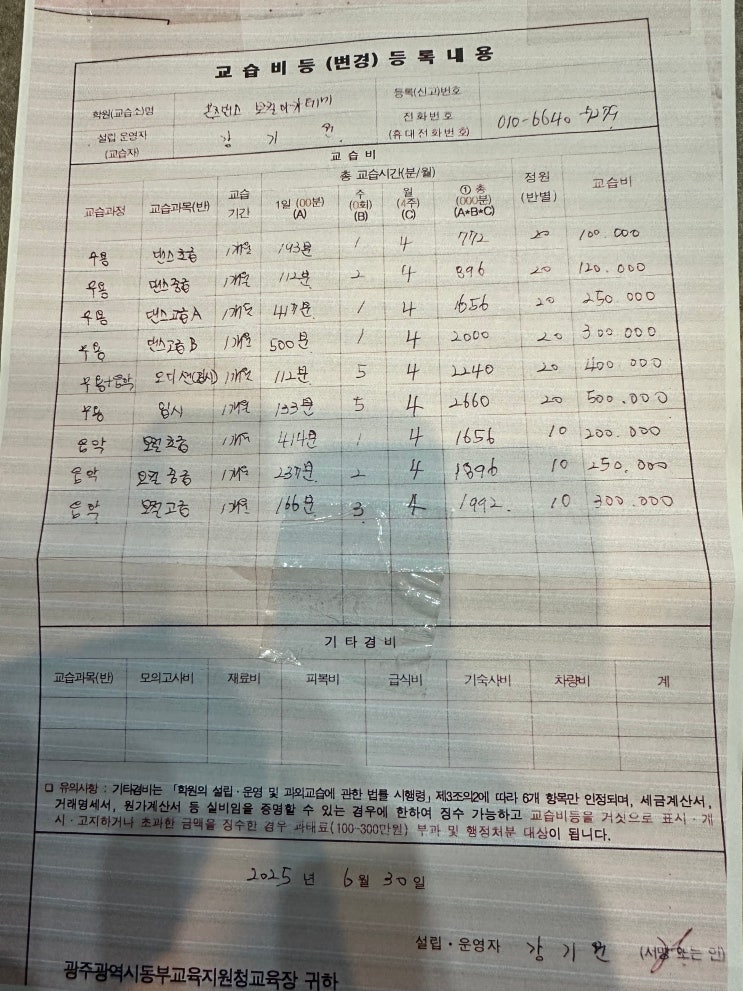 교습비등 (변경) 등록내용
학원(교습소)명 댄스 보컬아카데미 등록(신고)번호
설립·운영자 (교습자) 강기 전화번호 (휴대전화번호) 010-6640
교습비
교습과정 교습과목(반) 교습기간 총 교습시간(분/월) 정원(반별) 교습비
1일 (00분) (A) 주 (0회) (B) 월 (4주) (C) ① 총 (000분) (A*B*C)
무용 댄스초급 1개월 193분 1 4 772 20 100.000
무용 댄스중급 1개월 112분 2 4 896 20 120.000
무용 댄스고급 A 1개월 1 4 1656 20 250.000
무용 댄스고급 B 1개월 500분 1 4 2000 20 300 000
무용+음악 오디션(입시) 1개월 112분 5 4 2240 20 400 000
무용 입시 1개월 133분 5 4 2660 20 500.000
음악 보컬초급 1개월 414분 1 4 1656 10 200.000
음악 보컬중급 1개월 237분 2 4 1896 10 250.000
음악 보컬고급 1개월 166분 3 4 1992. 10 300.000
기타경비
교습과목(반) 모의고사비 재료비 피복비 급식비 기숙사비 차량비 계
□ 유의사항 : 기타경비는 「학원의 설립·운영 및 과외교습에 관한 법률 시행령」 제3조의2에 따라 6개 항목만 인정되며, 세금계산서,
거래명세서, 원가계산서 등 실비임을 증명할 수 있는 경우에 한하여 징수 가능하고 교습비등을 거짓으로 표시·게
시·고지하거나 초과한 금액을 징수한 경우 과태료(100~300만원) 부과 및 행정처분 대상이 됩니다.
2025 년 6월 30일
설립·운영자 강기 (서명 또는 인)
광주광역시동부교육지원청교육장 귀하